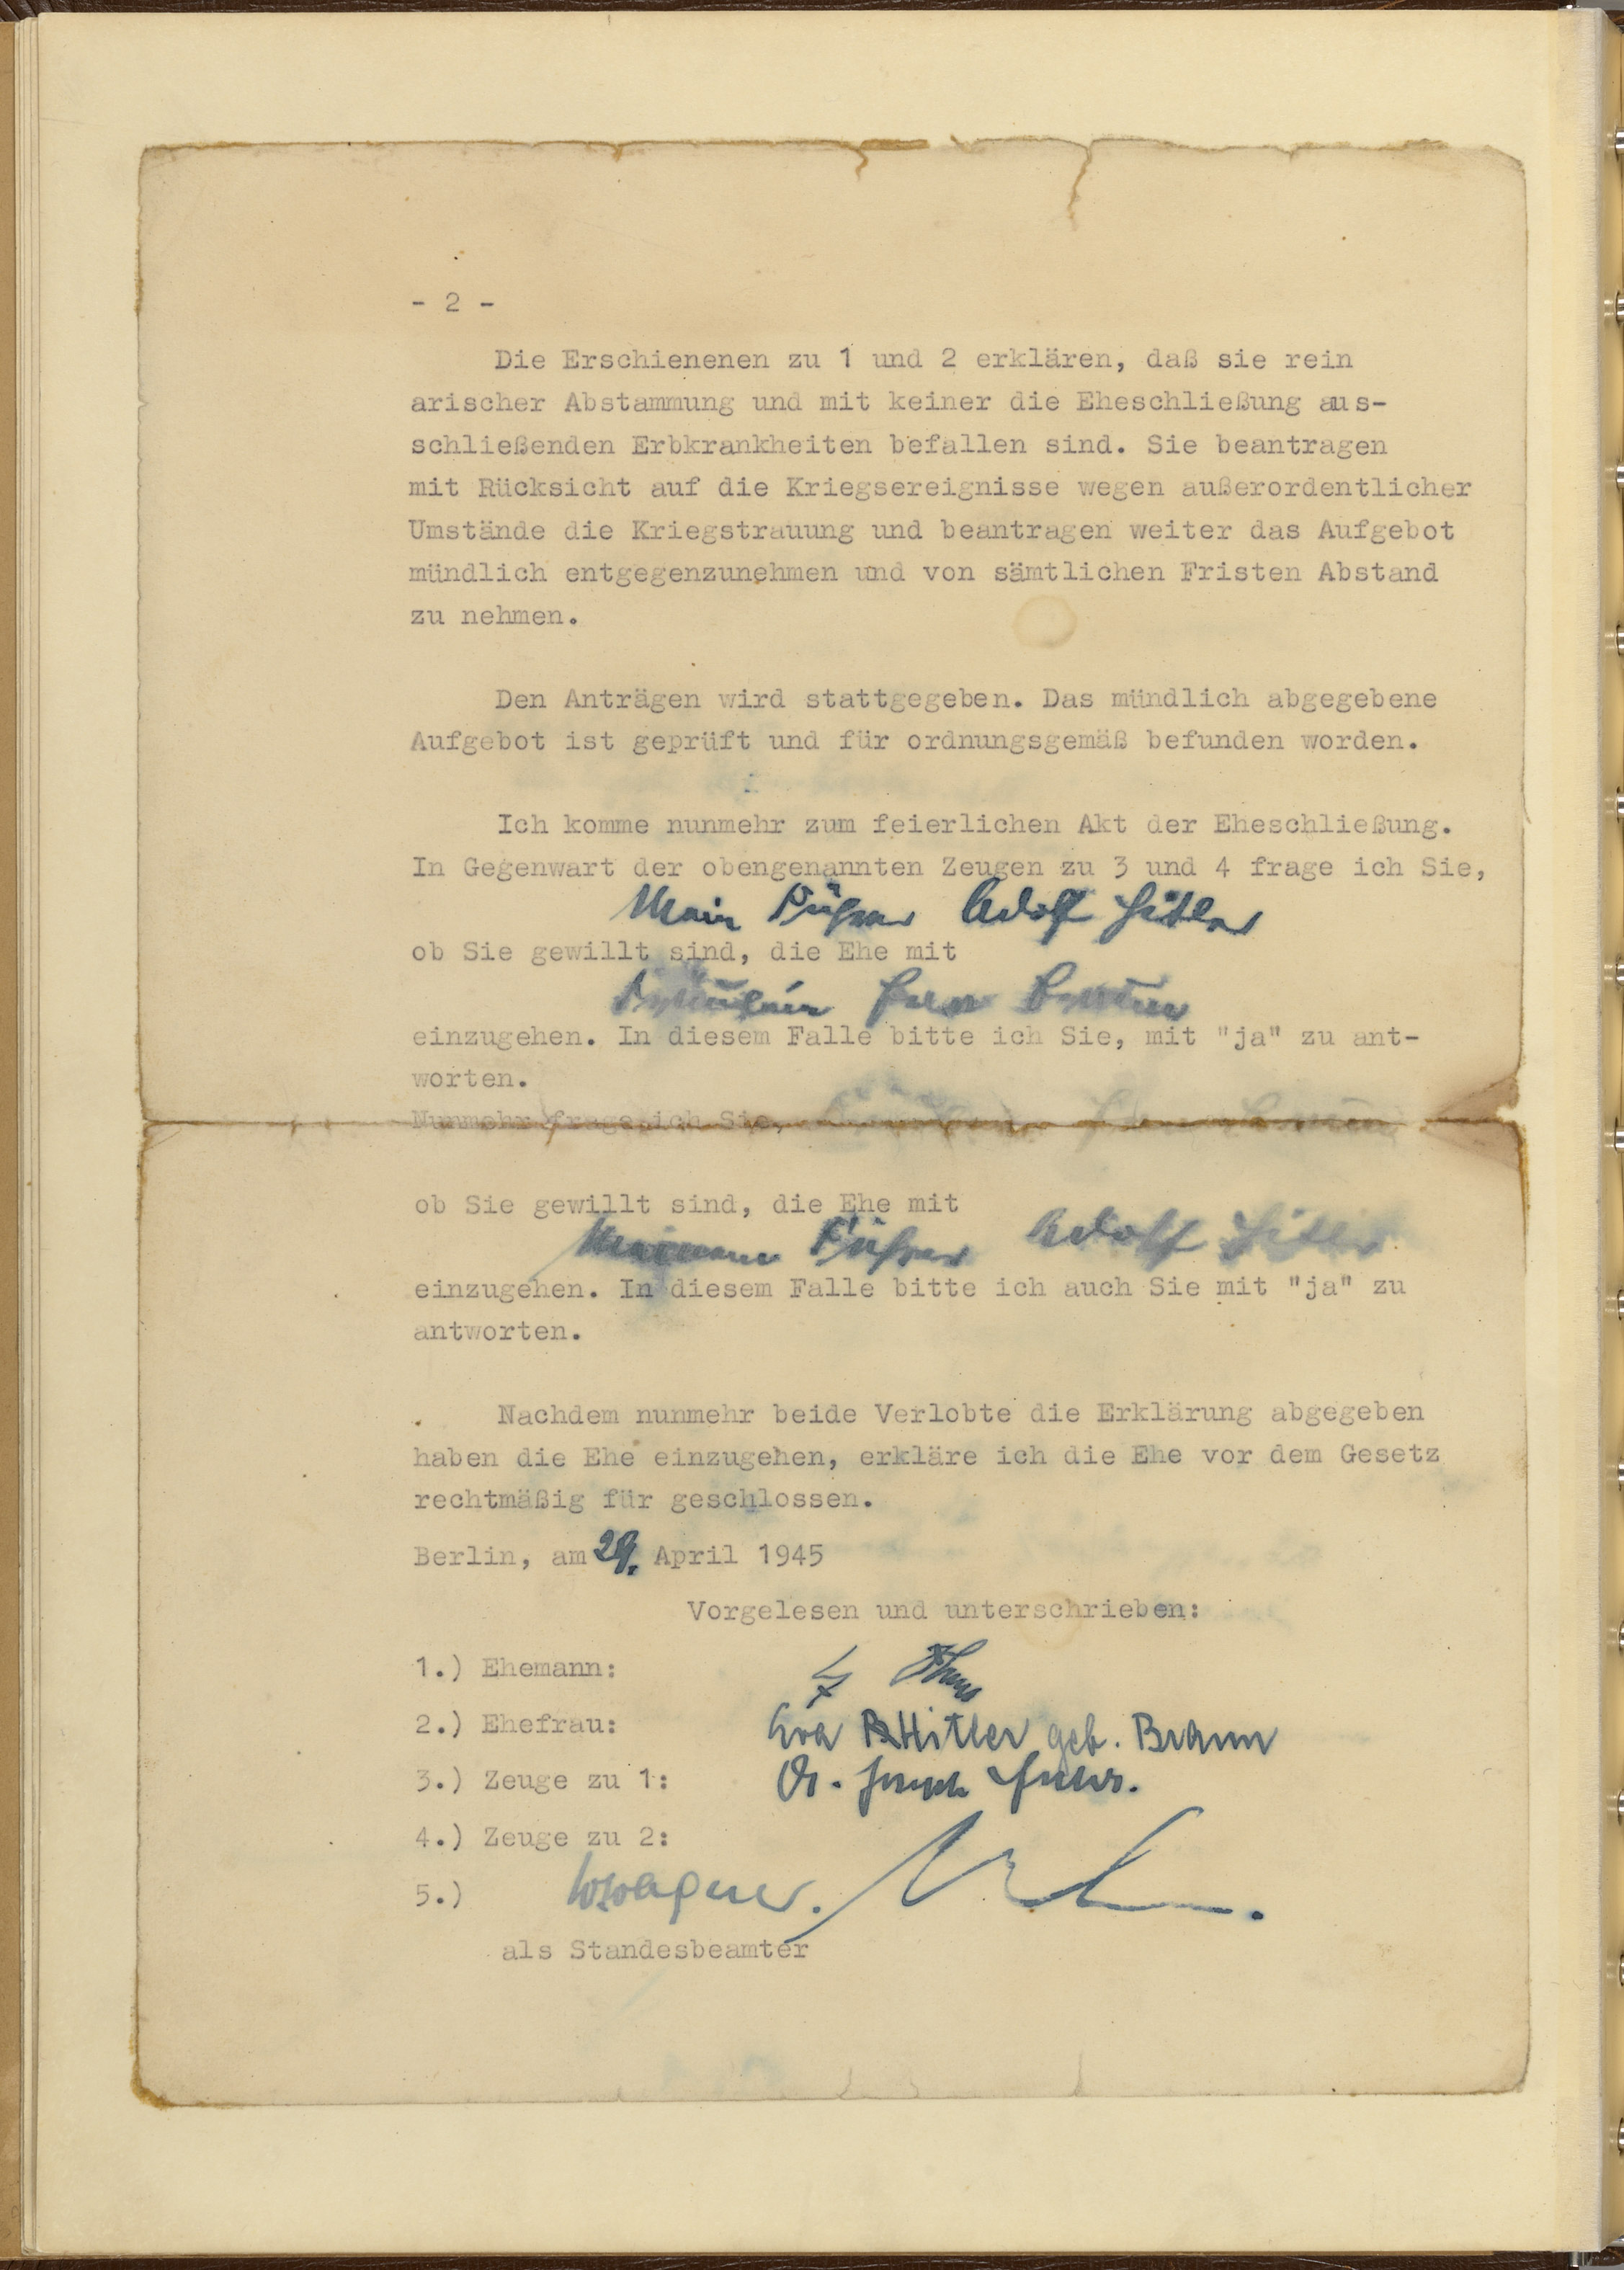 - 2 -
Die Erschienenen zu 1 und 2 erklären, daß sie rein
arischer Abstammung und mit keiner die Eheschließung aus-
schließenden Erbkrankheiten befallen sind. Sie beantragen
mit Rücksicht auf die Kriegsereignisse wegen außerordentlicher
Umstände die Kriegstrauung und beantragen weiter das Aufgebot
mündlich entgegenzunehmen und von sämtlichen Fristen Abstand
zu nehmen.
Den Anträgen wird stattgegeben. Das mündlich abgegebene
Aufgebot ist geprüft und für ordnungsgemäß befunden worden.
Ich komme nunmehr zum feierlichen Akt der Eheschließung.
In Gegenwart der obengenannten Zeugen zu 3 und 4 frage ich Sie,
Mein Führer Adolf Hitler
ob Sie gewillt sind, die Ehe mit
Fräulein Eva Braun
einzugehen. In diesem Falle bitte ich Sie, mit "ja" zu ant-
worten.
Nunmehr frage ich Sie, Fräulein Eva Braun
ob Sie gewillt sind, die Ehe mit
Meinem Führer Adolf Hitler
einzugehen. In diesem Falle bitte ich auch Sie mit "ja" zu
antworten.
Nachdem nunmehr beide Verlobte die Erklärung abgegeben
haben die Ehe einzugehen, erkläre ich die Ehe vor dem Gesetz
rechtmäßig für geschlossen.
Berlin, am 29. April 1945
Vorgelesen und unterschrieben:
1.) Ehemann:
2.) Ehefrau: Eva B Hitler geb. Braun
3.) Zeuge zu 1: Dr. Joseph
4.) Zeuge zu 2:
5.) Wagner.
als Standesbeamter